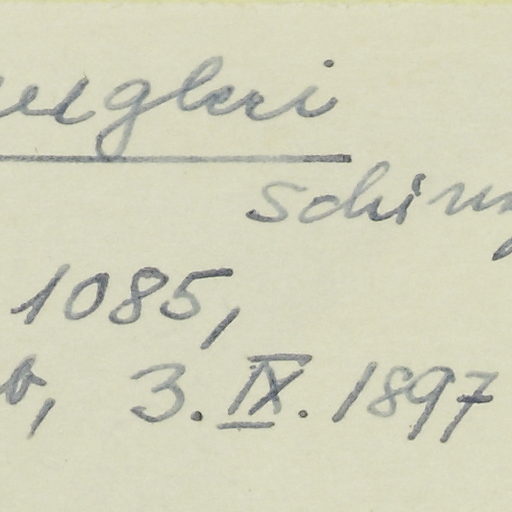 eugleri
Schimp
1085,
b, 3. IX. 1897